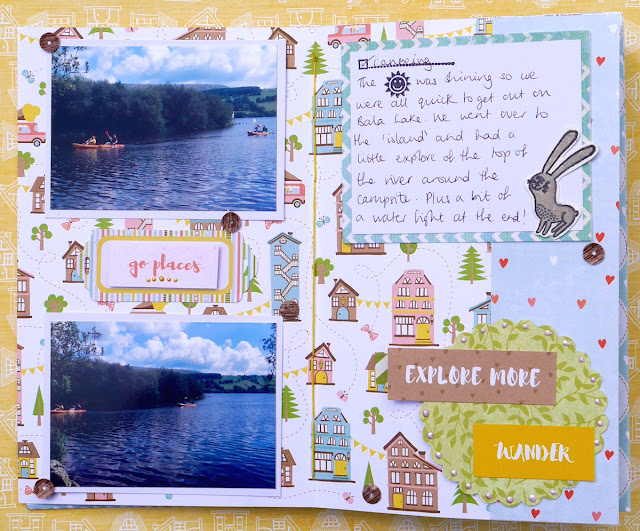 Canoeing
The was shining so we
were all quick to get out on
Bala Lake. We went over to
the 'island' and had a
little explore of the top of
the river around the
campsite. Plus a bit of
a water fight at the end!
go places
EXPLORE MORE
WANDER